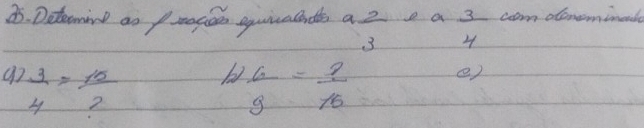 25. Determine as frações equivalentes a 2/3 e a 3/4 com denominado
a) 3/4 = 15/? b) 6/9 = ?/15 c)